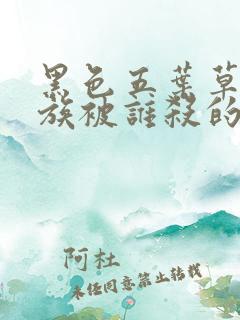 黑色五葉草
族被誰殺的
阿杜
未经同意禁止转载